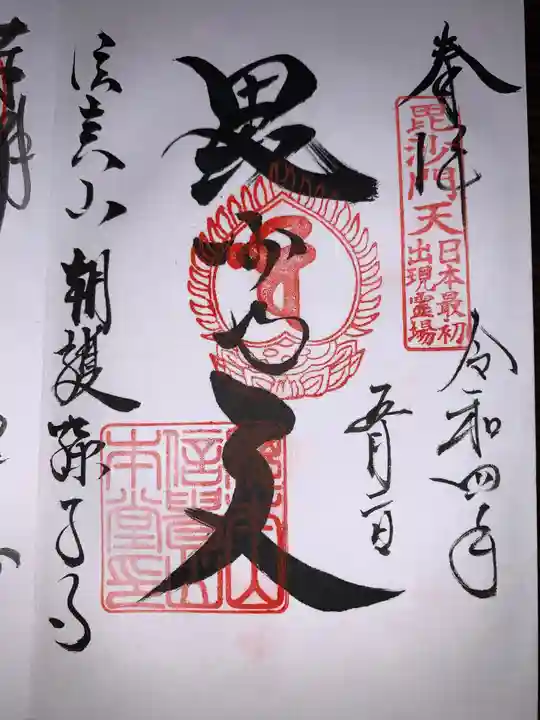 奉拝
毘沙門天
日本最初
出現霊場
令和四年
五月二日
毘沙門天
信貴山
本堂印
信貴山 朝護孫子寺